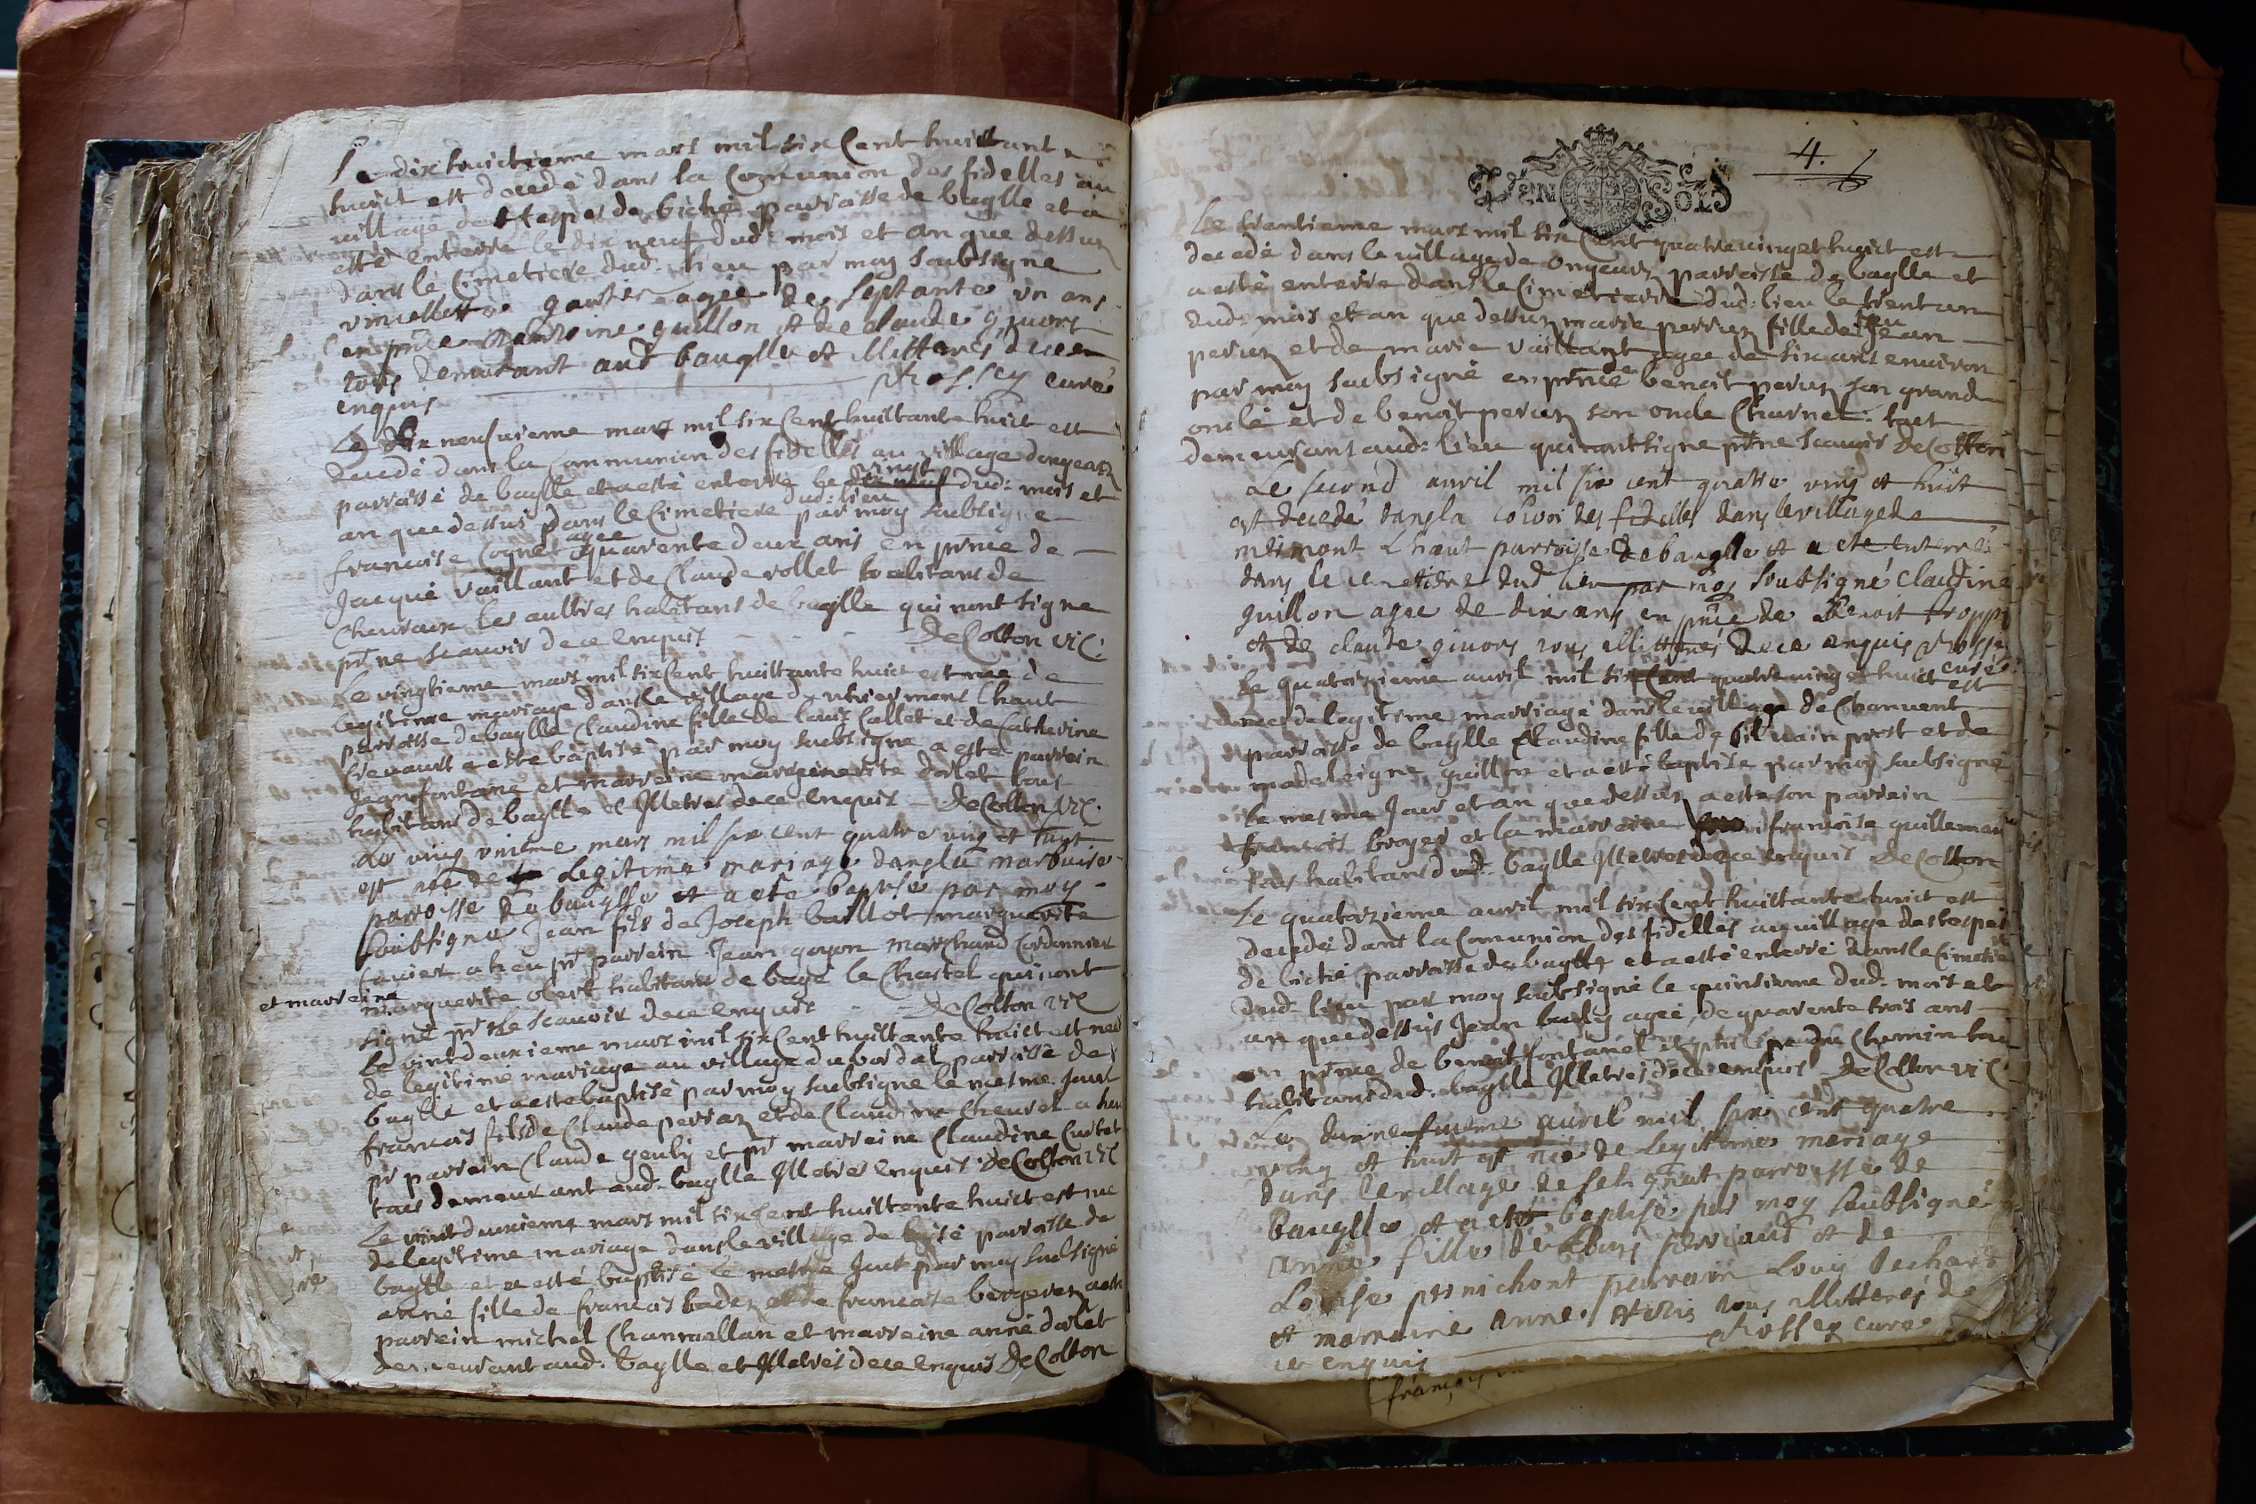 Le dix huictieme mars mil six Cent huittante
huict est decedé dans la Comunion des fidelles au
village des Hespes de biché parroisse de baglle et a
esté enterré le dix neuf dud: mois et an que dessus
dans le Cimetiere dud: lieu par moy soubsigne
gautier agee de septante un ans
en pnce guillon et de claude givors
tous demeurant aud bauglle et illitterés de ce
enquis curé
Le dix neufuieme mars mil six Cent huittante huict est
decedé dans la Communion des fidelles au village dongeur
parroisse de baglle et a esté enterré le vingt dud: mois et
an que dessus dans le Cimetiere dud: lieu par moy subsigne
francoise Cognet agee quarente deux ans en pnce de
Jacque Vaillant et de Claude rollet habitans de
les aultres habitans de baglle qui nont signe
pr ne scauoir de ce enquis DeColton vic:
Le vingtieme mars mil six Cent huittante huict est nee de
legitime mariage dans le village de lhaut
parroisse de baglle Claudine fille de louis Collet et de Catherine
a este baptisé par moy subsigne a esté parrein
Jean fontaine et marreine marguerite dolet tous
habitans de baglle et Illetres de ce enquis DeColton vic.
Le ving unieme mars mil six cent quatre ving et huit
est né de legitime mariage dans la
parroisse de bauglle et a eté baptisé par moy
soubsigné Jean fils de Joseph baillot marguerite
Cavier a heu pr parrein Jean goyon marchand Cordonnier
et marreine
marguerite obert habitans de bagé le Chastel qui nont
signé pr ne scauoir de ce enquis DeColton vic
Le vint deuxieme mars mil six Cent huittante huict est né
de legitime mariage au village du bordel parroisse de
baglle et a esté baptisé par moy subsigne le mesme Jour
francois fils de Claude perraz et de Claudine Cheurel a heu
pr parrein Claude genty et pr marreine Claudine Curtet
tous demeurant aud: baglle Illetres enquis DeColton vic
Le vint deuxieme mars mil six Cent huittente huict est né
de legitime mariage dans le village de parroisse de
baglle et a esté baptisé le mesme Jour par moy subsigné
anné fille de francois badez et de francoise bergerez a esté
parrein michel Channellan et marreine anné dolet
demeurant aud: baglle et Illetrés de ce enquis DeColton
4.
DEN SOLS
Le trentieme mars mil six Cent quatre vinget huict est
decedé dans le village de ongeurs parroisse de baglle et
a esté enterré dans le Cimetierre dud: lieu le trentun
dud: mois et an que dessus marie perruz fille de feu Jean
peruz et de marie Vaillant agee de six ans environ
par moy soubsigné en pnce benoit peruz son grand
oncle et de benoit peruz son oncle Charnel tout
demeurant aud: lieu qui nont signe pr ne scauoir DeColton
Le second auril mil six cent quatre ving et huit
est decedé dans la des fidelles dans le village de
Lhaut parroisse de bauglle et a eté enterré
dans le cemettiere dud lieu par moy soubsigné claudine
guillon agee de dix ans en pnce de Benoit
et de claude givors tous illitterés de ce enquis
curé
Le quatorzieme auril mil six Cent quatre ving et huict est
nee de legitime marriage dans le village de Chanuent
parroisse de baglle Claudine fille de siluain port et de
madeleigne guillon et a esté baptisé par moy subsigné
le mesme Jour et an que dessus a esté son parrein
francois broyer et la marreine francoise guillemau
tous habitans dud: baglle Illetres de ce enquis DeColton
Le quatorzieme auril mil six Cent huittante huict est
decedé dans la Comunion des fidelles au village des hespes
de biché parroisse de baglle et a esté enterré dans le Cimetie
dud: lieu par moy subsigné le quinsieme dud: mois et
an que dessus Jean agé de quarente trois ans
en pnce de benoit fontanel et Chemin tous
habitans dud. baglle Illetres de ce enquis DeColton vic.
Le auril mil six cent quatre
ving et huit est né de legitime mariage
dans le village de parroisse de
bauglle et a eté baptisé par moy soubsigné
anne fille de et de
Louise pernichont parrain Louy
et marraine Anne tous illitterés de
ce enquis curé